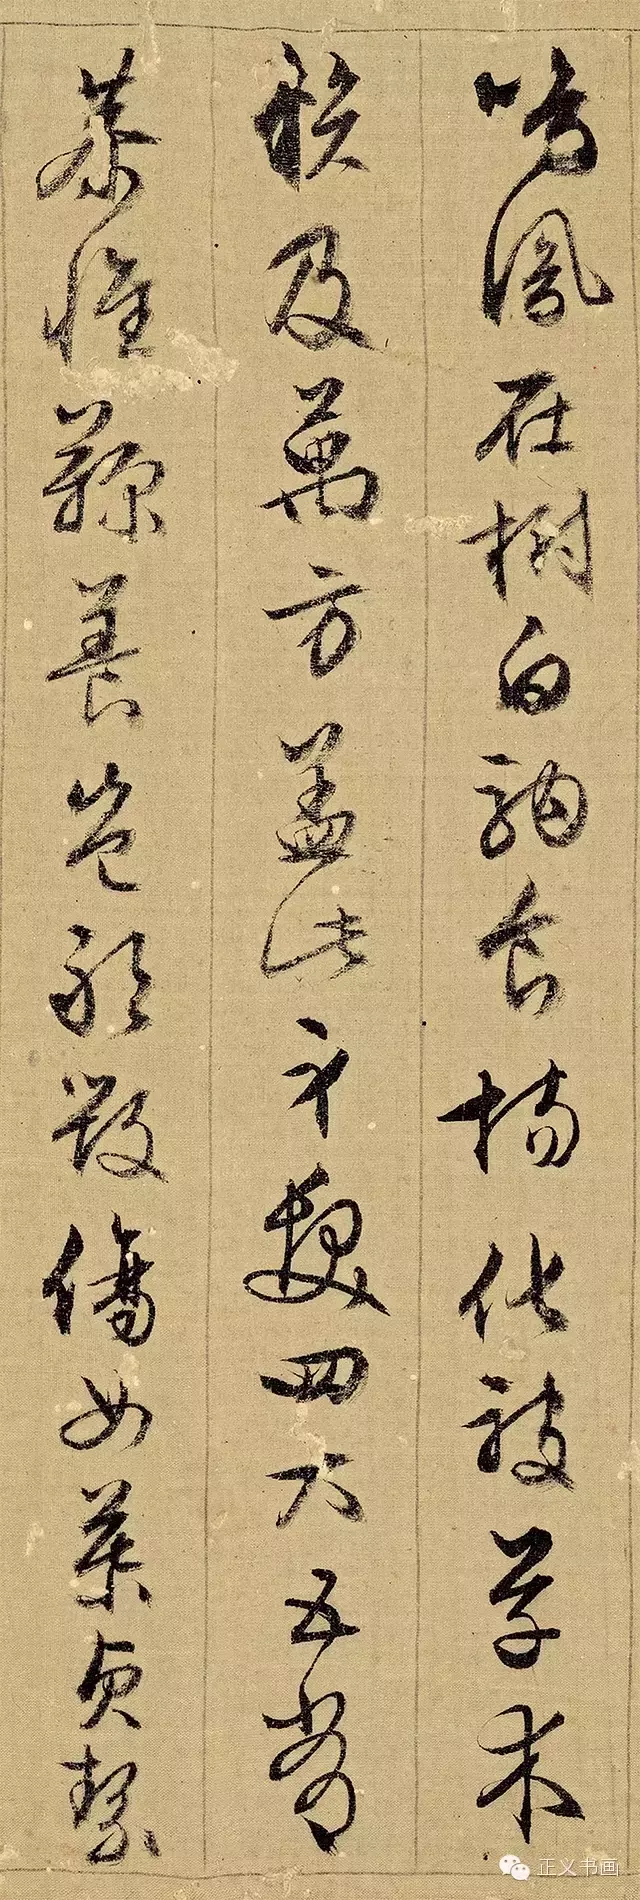 鳴鳳在樹白駒食場化被草木
賴及萬方蓋此身髮四大五常
恭惟鞠養豈敢毀傷女慕貞絜
正义书画